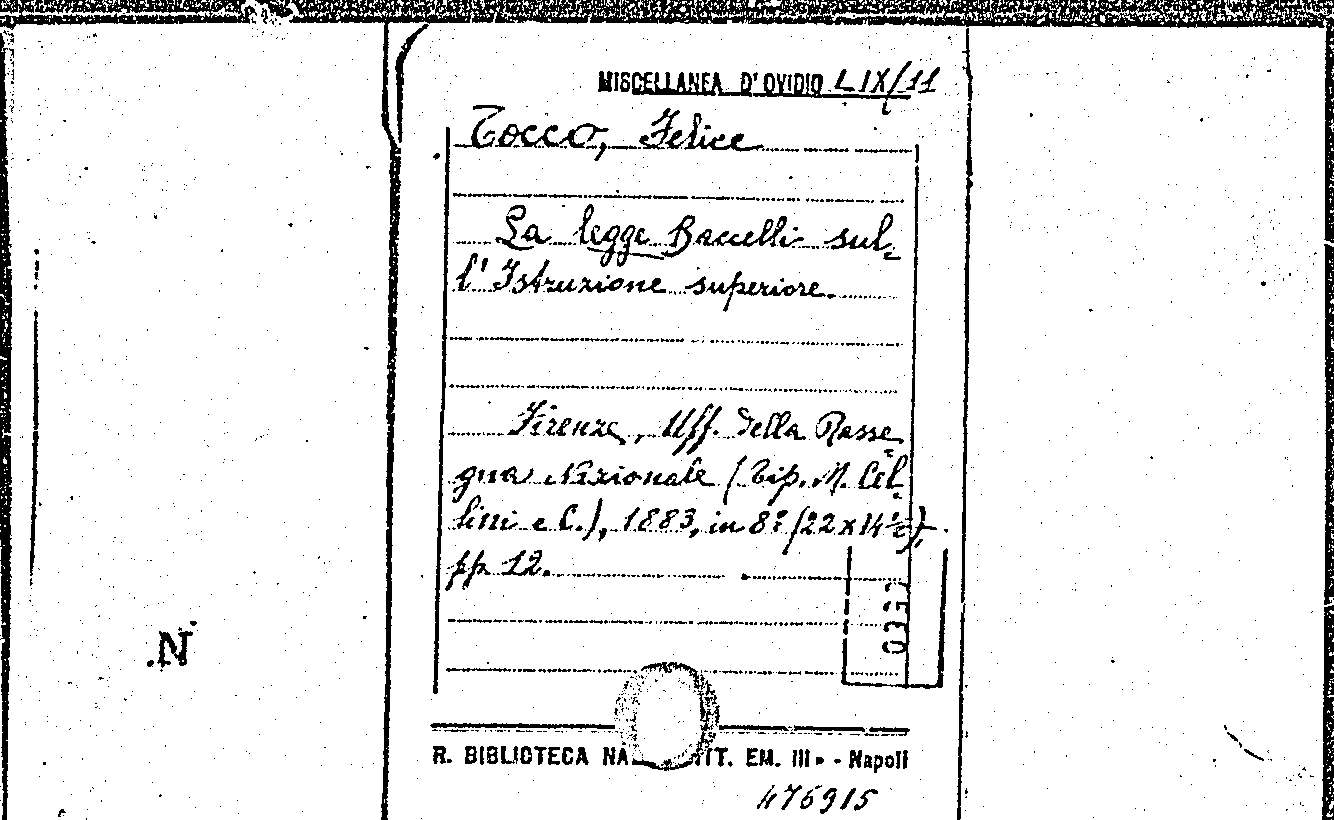 MISCELLANEA D'OVIDIO LIX/11
Tocco, Felice
La legge Baccelli sul-
l'Istruzione superiore.
Firenze, Uff. della Rasse-
gna Nazionale (Tip. M. Cel-
lini e C.), 1883, in 8º (22x14½),
pp. 12.
R. BIBLIOTECA NA TT. EM. III» - Napoli
476915
N.